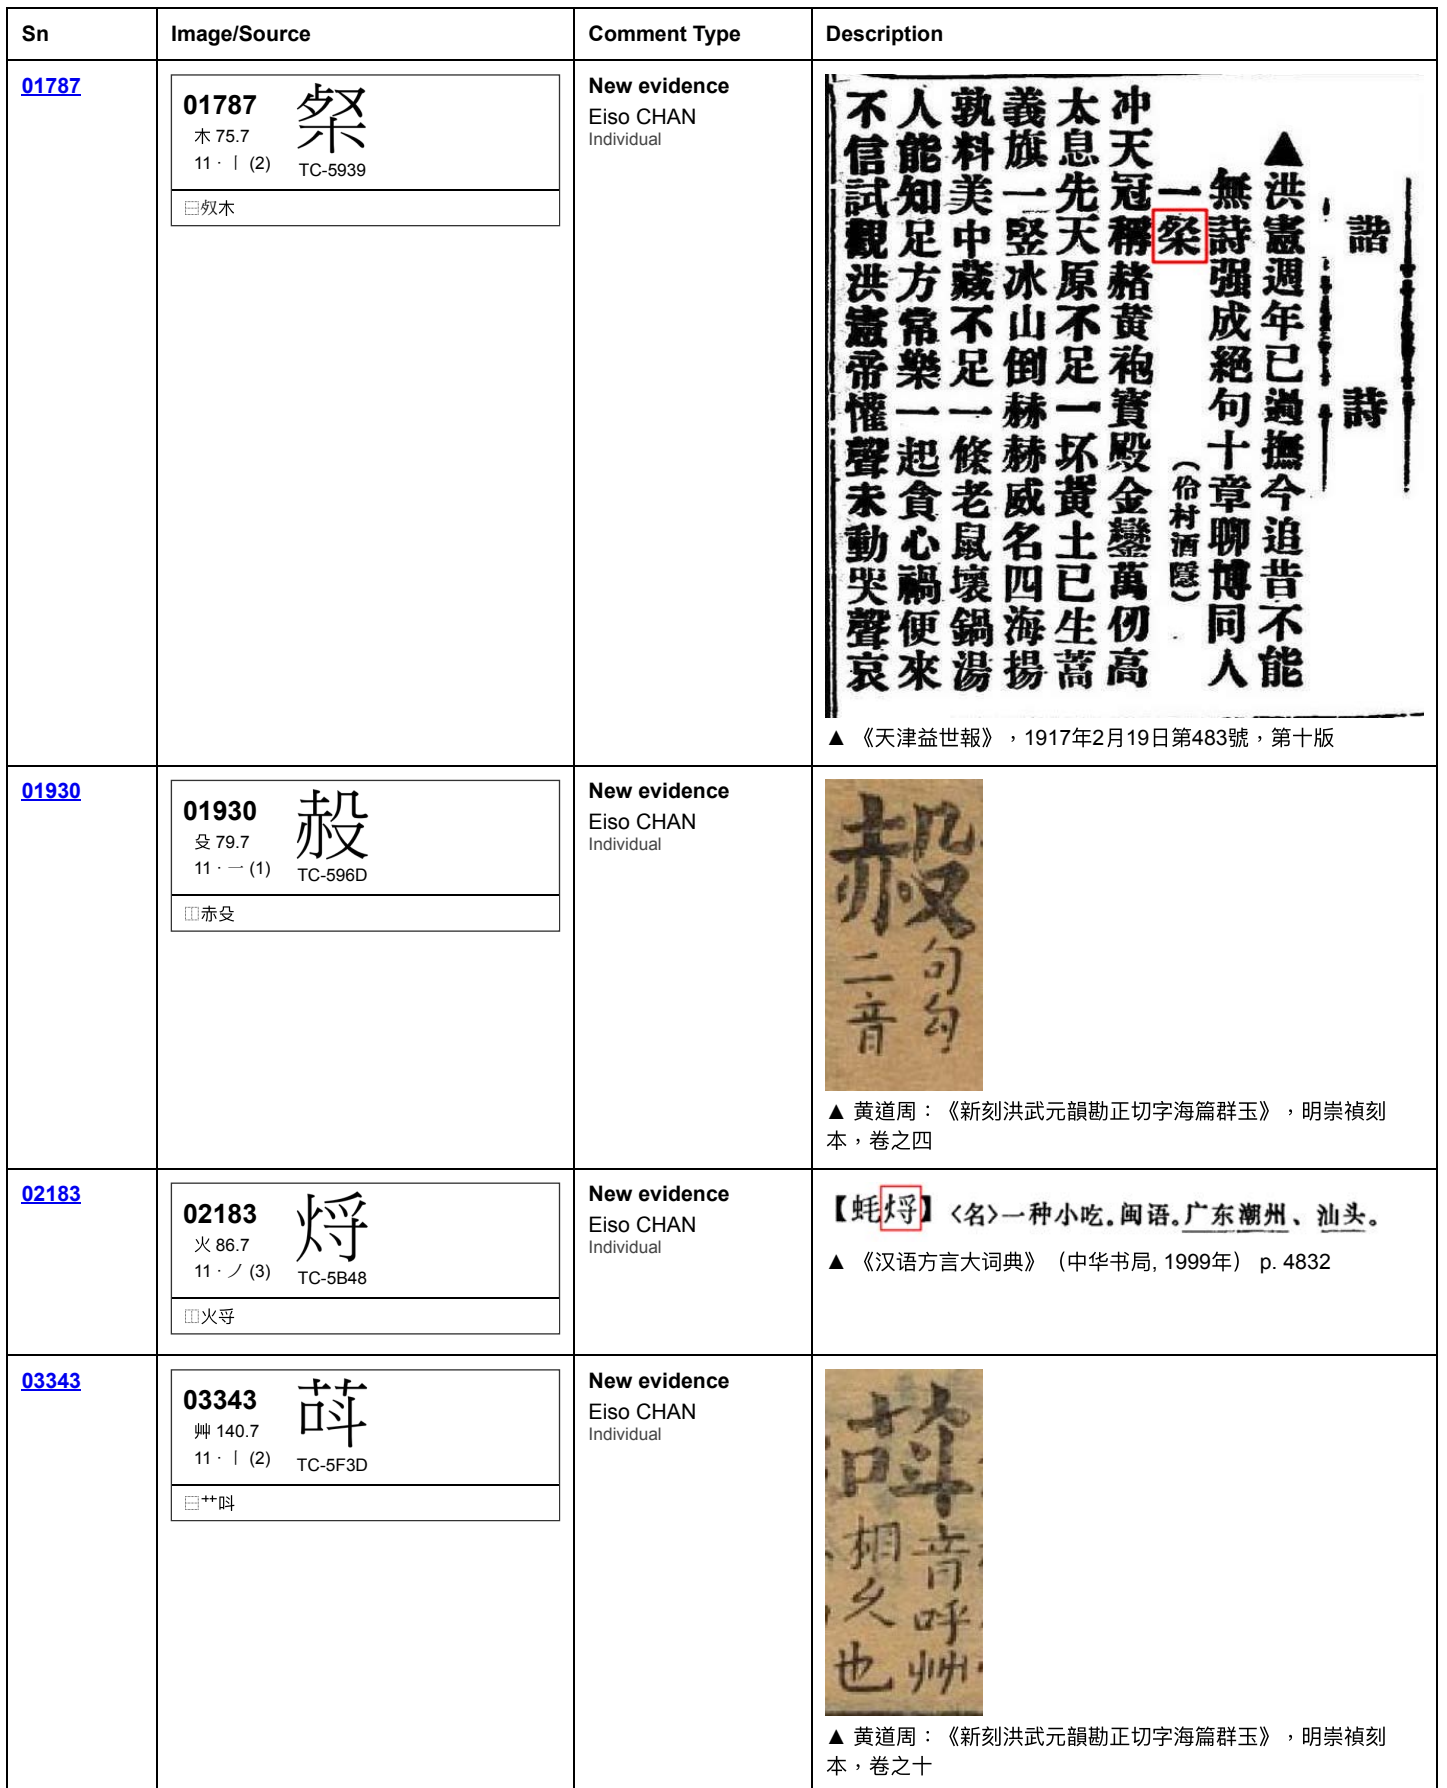 Sn Image/Source Comment Type Description
01787
01787
木 75.7
11 · 丨 (2)
TC-5939
⿱㕡木
New evidence
Eiso CHAN
Individual
諧詩
▲洪憲週年已過撫今追昔不能
無詩强成絕句十章聊博同人
一
(伧村酒隱)
冲天冠稱赭黃袍寶殿金鑾萬仞高
太息先天原不足一坏黃土已生蒿
義旗一竪冰山倒赫赫威名四海揚
孰料美中藏不足一條老鼠壞鍋湯
人能知足方常樂一起貪心禍便來
不信試觀洪憲帝懽聲未動哭聲哀
▲ 《天津益世報》，1917年2月19日第483號，第十版
01930
01930
殳 79.7
11 · 一 (1)
TC-596D
⿰赤殳
New evidence
Eiso CHAN
Individual
句勾
二音
▲ 黄道周：《新刻洪武元韻勘正切字海篇群玉》，明崇禎刻
本，卷之四
02183
02183
火 86.7
11 · ノ (3)
TC-5B48
⿰火寽
New evidence
Eiso CHAN
Individual
【蚝⿰火寽】〈名〉一种小吃。闽语。广东潮州、汕头。
▲ 《汉语方言大词典》（中华书局, 1999年） p. 4832
03343
03343
艸 140.7
11 · 丨 (2)
TC-5F3D
⿱艹呌
New evidence
Eiso CHAN
Individual
音呼艸
相乆也
▲ 黄道周：《新刻洪武元韻勘正切字海篇群玉》，明崇禎刻
本，卷之十